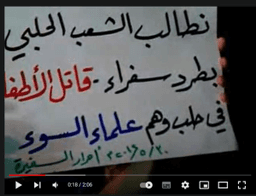 نطالب الشعب الحلبي
بطرد سفراء - قاتل الأطفا
في حلب وهم علماء السوء
احرار السفيرة
0:18 / 2:06